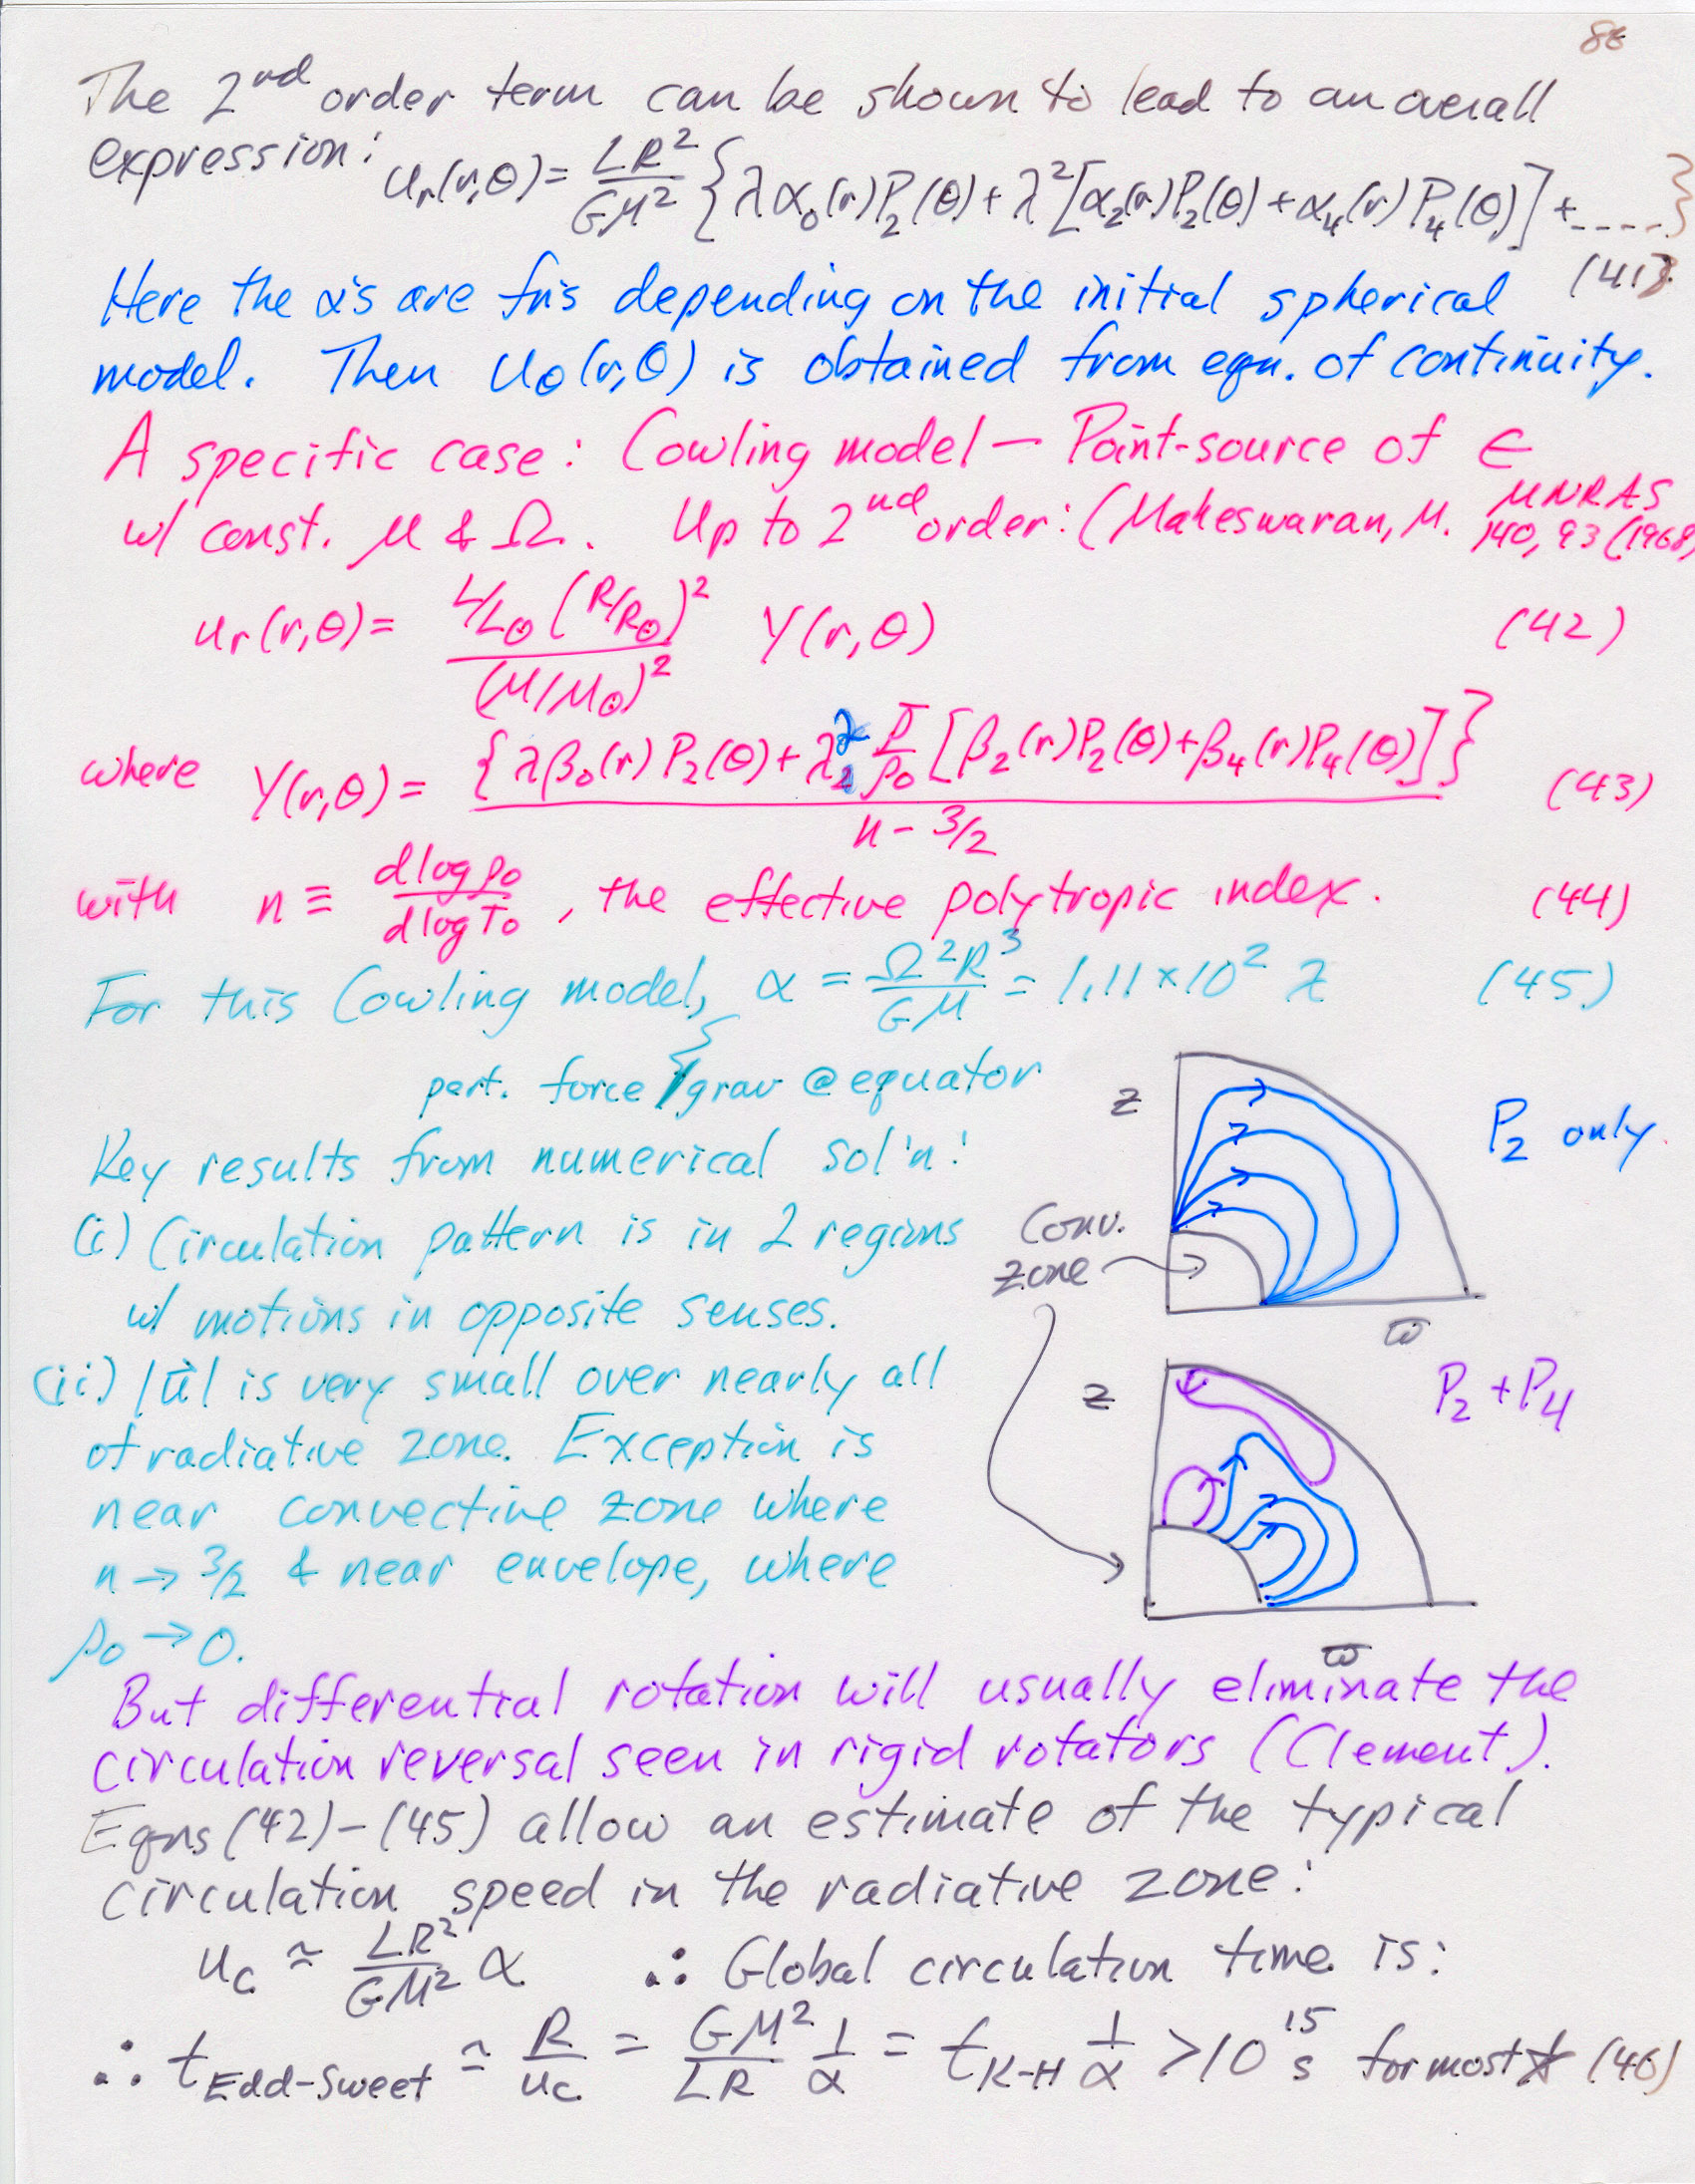 88
The 2nd order term can be shown to lead to an overall
expression: u_r(r,θ) = LR²/GM² {λα₀(r)P₂(θ) + λ²[α₂(r)P₂(θ) + α₄(r)P₄(θ)] + ....}
(41)
Here the α's are fn's depending on the initial spherical
model. Then u_θ(r,θ) is obtained from eqn. of continuity.
A specific case: Cowling model — Point-source of ϵ
w/ const. M & Ω. Up to 2nd order: (Maheswaran, M. MNRAS 140, 93 (1968)
u_r(r,θ) = L/L⊙ (R/R⊙)² / (M/M⊙)² Y(r,θ) (42)
where Y(r,θ) = {λβ₀(r)P₂(θ) + λ² ρ̄/ρ₀ [β₂(r)P₂(θ) + β₄(r)P₄(θ)]} / n - 3/2 (43)
with n ≡ dlogρ₀/dlogT₀, the effective polytropic index. (44)
For this Cowling model, α = Ω²R³/GM = 1.11×10² λ (45)
pert. force/grav @ equator
z
P₂ only.
Key results from numerical sol'n:
(i) Circulation pattern is in 2 regions
Conv.
zone
w/ motions in opposite senses.
ϖ
(ii) |u⃗| is very small over nearly all
z
P₂ + P₄
of radiative zone. Exception is
near convective zone where
n → 3/2 & near envelope, where
ρ₀ → 0.
ϖ
But differential rotation will usually eliminate the
circulation reversal seen in rigid rotators (Clement).
Eqns (42)-(45) allow an estimate of the typical
circulation speed in the radiative zone:
u_c ≈ LR²/GM² α ∴ Global circulation time is:
∴ t_Edd-Sweet ≃ R/u_c = GM²/LR 1/α = t_K-H 1/α > 10¹⁵ s for most ☆ (46)